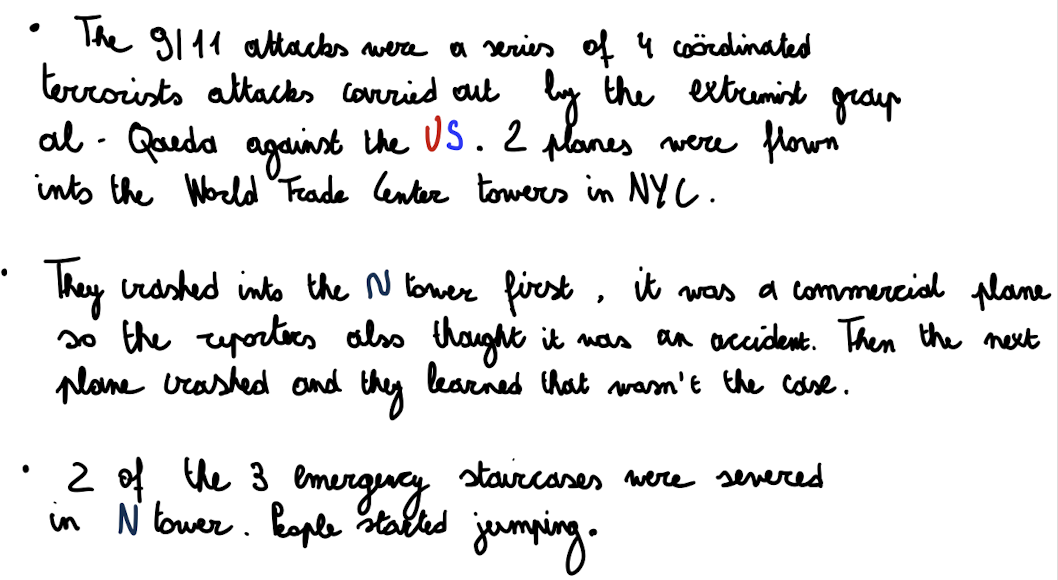 • The 9/11 attacks were a series of 4 coördinated
terrorists attacks carried out by the extremist group
al - Qaeda against the US. 2 planes were flown
into the World Trade Center towers in NYC.
• They crashed into the N tower first, it was a commercial plane
so the reporters also thought it was an accident. Then the next
plane crashed and they learned that wasn't the case.
• 2 of the 3 emergency staircases were severed
in N tower. People started jumping.